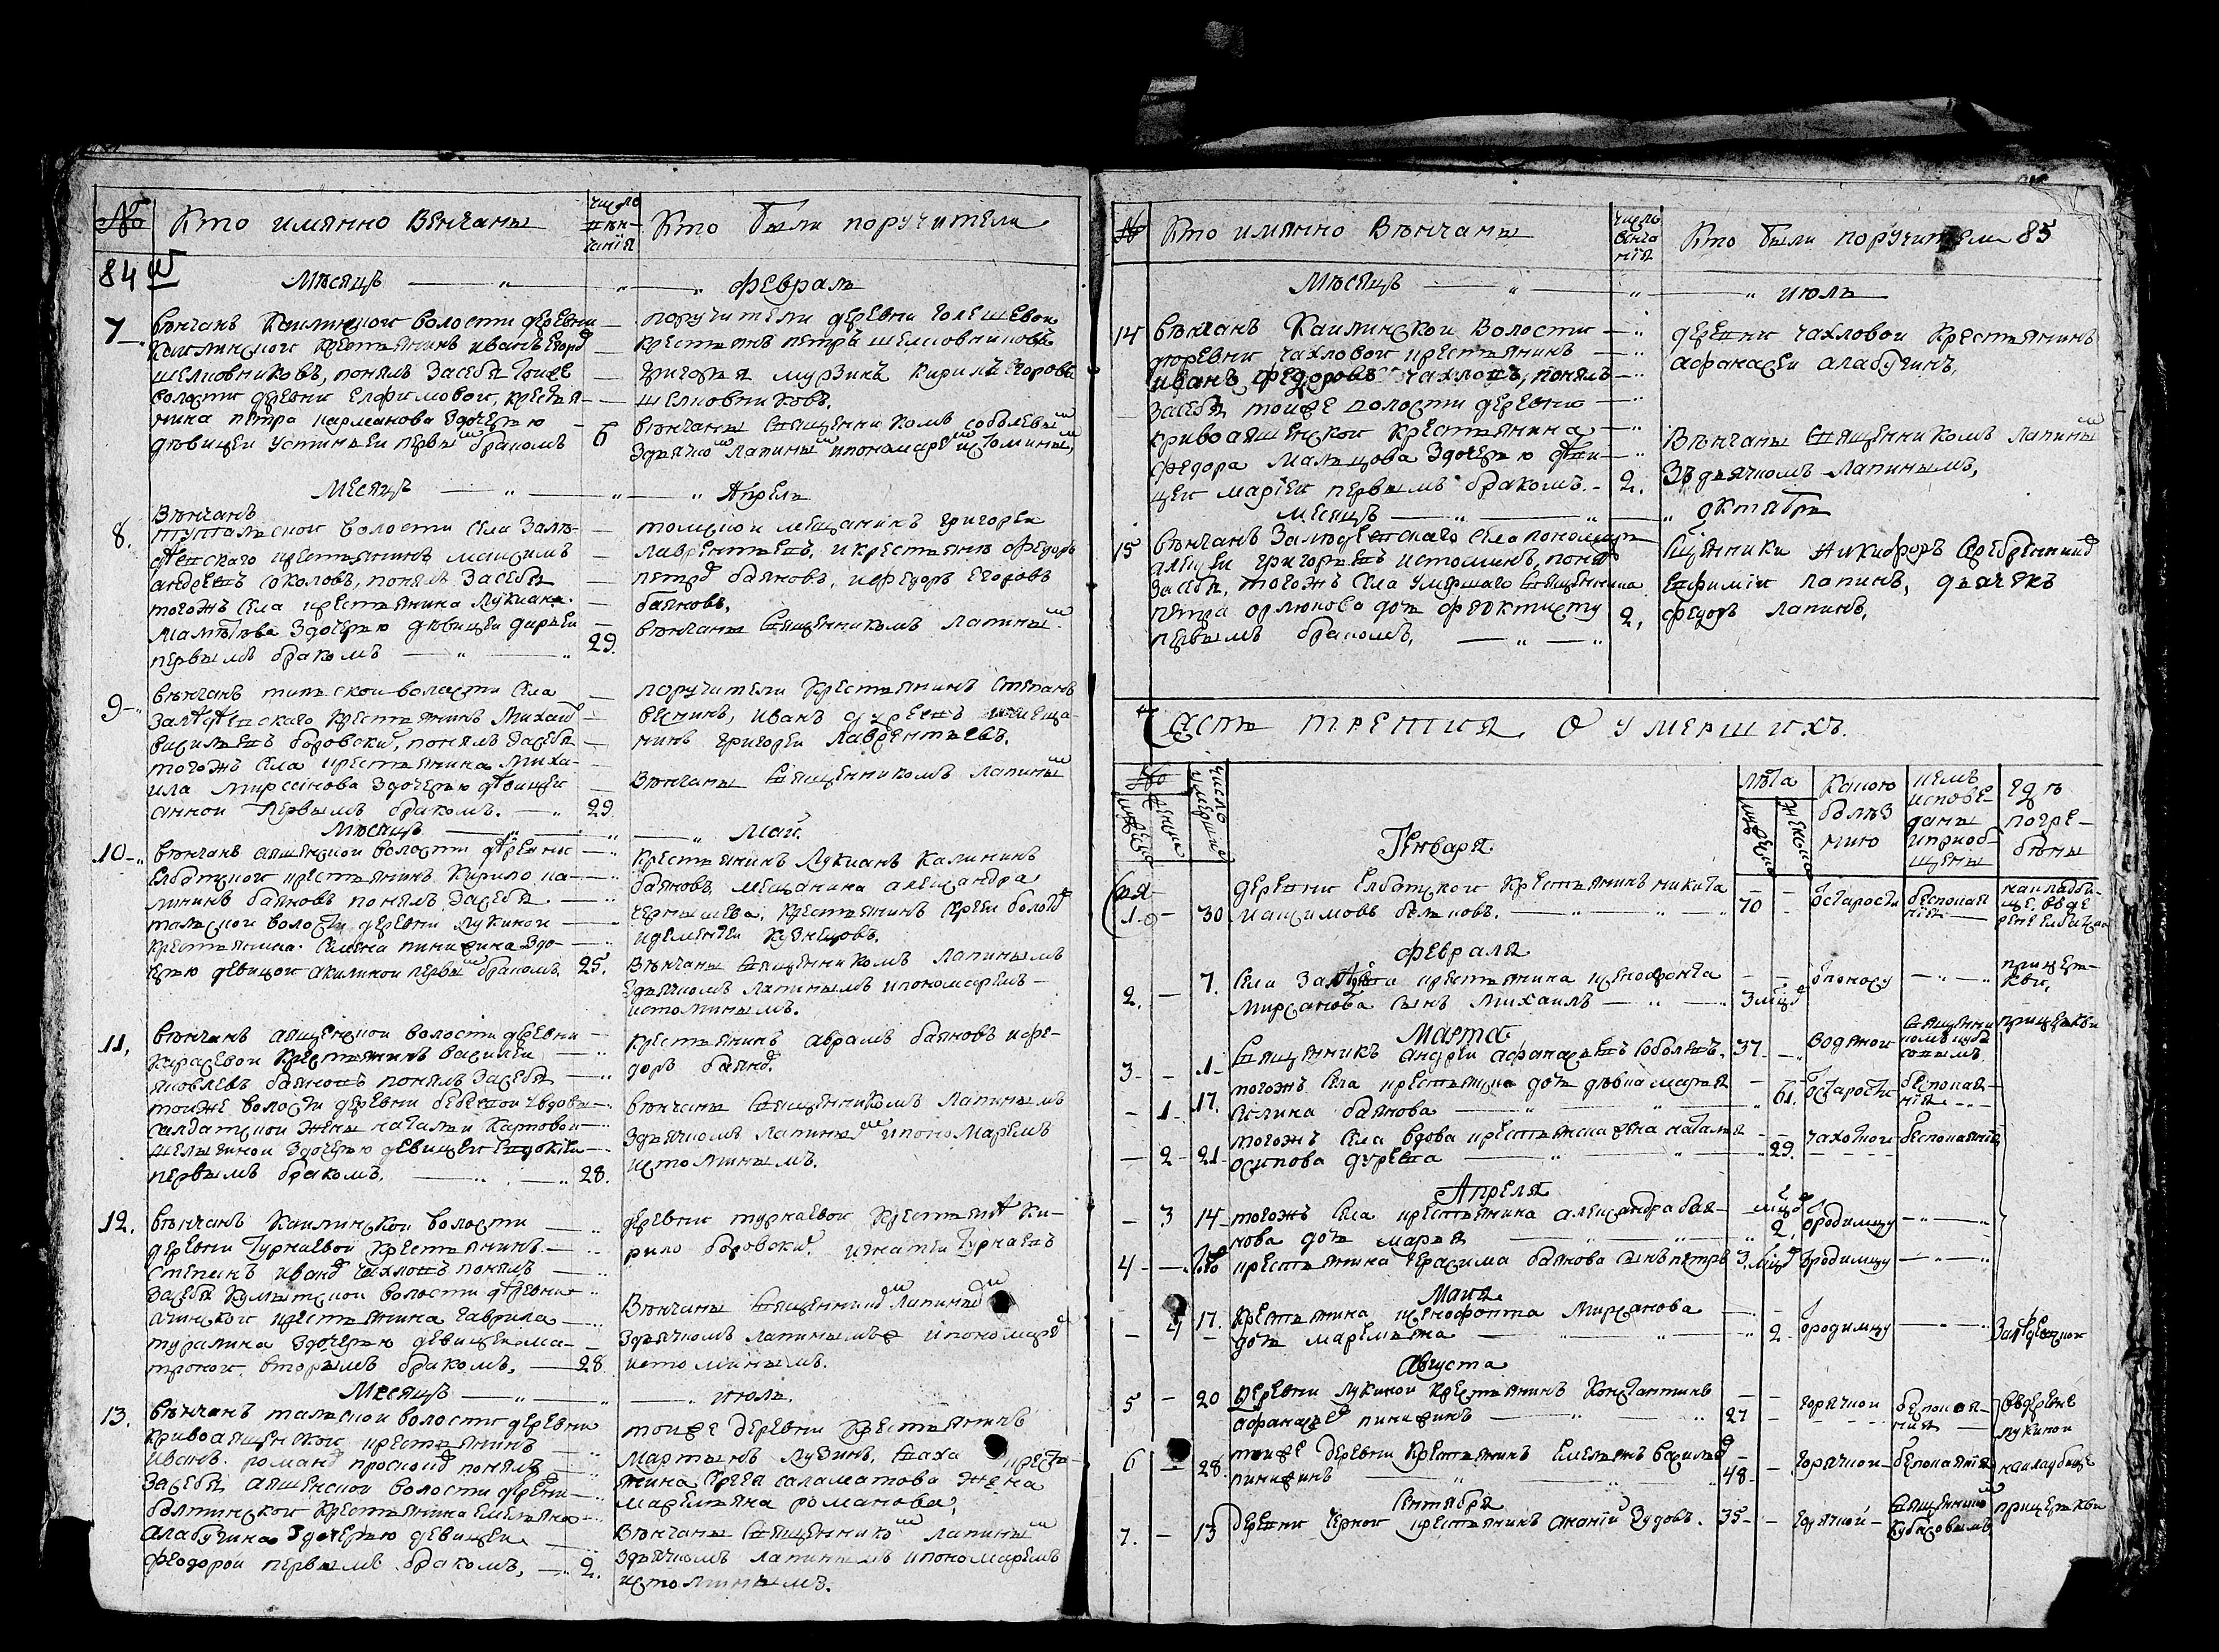 № Кто имянно венчаны число вѣнчанїя Кто были поручители
84
Мѣсяцъ февраль
7
вѣнчанъ Каилинской волости деревни
Каилинской крестьянинъ иванъ Егоръ
шелковниковъ, понялъ засебя тоиже
волости деревни Елфимовои, крестья-
нина петра карманова здочерью
девицеи устиньеи первымъ бракомъ 6
поручители деревни
крестьянъ петръ шелковниковъ
григорья мурзинъ кирилъ Егоровъ
шелковниковъ.
вѣнчаны священникомъ соболевымъ
здьячкомъ лапинымъ ипономаремъ истоминымъ,
Месяцъ Апрель
8.
Вѣнчанъ
тутальской волости села залѣ-
дѣевскаго крестьянинъ максимъ
андреевъ соколовъ, понялъ засебя
тогожъ села крестьянина Лукиана
здочерью девицеи дарьеи
первымъ бракомъ 29.
томской мещанинъ григореи
лаврентьевъ, икрестьяне федоръ
петровъ баяновъ, ифедоръ Егоровъ
баяновъ,
вѣнчаны священникомъ лапинымъ
9
вѣнчанъ волости села
залѣдѣевскаго крестьянинъ михаилъ
васильевъ боровскиъ, понялъ засебя
тогожъ села крестьянина миха-
ила мирсанова здочерью девицеи
анной первымъ бракомъ. 29.
поручители крестьянинъ степанъ
веснинъ, иванъ дуреевъ имеща-
нинъ григореи лаврентьевъ.
Вѣнчаны священникомъ лапинымъ
Мѣсяцъ Маи.
10
вѣнчанъ аяшенской волости деревни
Елбатской крестьянинъ кирило ка-
лининъ баяновъ понялъ засебя
тальской волости деревни лукиной
крестьянина семена пинигина здо-
черью девицои акилиной первымъ бракомъ. 25.
Крестьянинъ Лукианъ калининъ
баяновъ, мещанина александра
чернышева, крестьянинъ сергеи болотовъ
идементеи кузнецовъ.
Вѣнчаны священникомъ лапинымъ
здьячкомъ лапинымъ ипономаремъ
истоминымъ.
11,
вѣнчанъ аяшенской волости деревни
карасевой крестьянинъ василеи
яковлевъ баяновъ понялъ засебя
тоиже волости деревни вдовы
салдатской жены натальи карповои
здочерью девицеи Евдокіеи
первымъ бракомъ. 28.
крестьянинъ аврамъ баяновъ ифе-
доръ баяновъ.
вѣнчаны священникомъ лапинымъ
здьячкомъ лапинымъ ипономаремъ
истоминымъ.
12.
вѣнчанъ каилинской волости
деревни турнаевой крестьянинъ
степанъ ивановъ чахловъ понялъ
засебя волости деревни
ачинской крестьянина гаврила
туралина здочерью девицею ма-
троной вторымъ бракомъ. 28
деревни турнаевой крестьянѣ ки-
рило боровскиъ игнатеи турнаевъ
Вѣнчаны священникомъ лапинымъ
здьячкомъ лапинымъ ипономаремъ
истоминымъ.
Месяцъ июль.
13.
вѣнчанъ тальской волости деревни
кривояшенской крестьянинъ
иванъ романовъ понялъ
засебя аяшенской волости деревни
болтинской крестьянина Емельяна
алабугина здочерью девицеи
феодорой первымъ бракомъ, 2.
тоиже деревни крестьянинъ
мартынъ лузинъ, сваха кресть-
янина сергея саламатова жена
маремьяна романова,
Вѣнчаны священникомъ лапинымъ
здьячкомъ лапинымъ ипономаремъ
истоминымъ.
№ Кто имянно вѣнчаны число вѣнчанїя Кто были поручители 85
Мѣсяцъ июль
14
вѣнчанъ Каилинской волости
деревни чахловой крестьянинъ
иванъ федоровъ чахловъ, понялъ
засебя тоиже волости деревни
кривояшенской крестьянина
федора мальцова здочерью дѣви-
цеи маріеи первымъ бракомъ. 2.
деревни чахловой крестьянинъ
афанасеи алабугинъ,
Вѣнчаны священникомъ лапинымъ
здьячкомъ лапинымъ,
Месяцъ октябрь
15
вѣнчанъ залѣдѣевскаго села пономарь
алексеи григорьевъ истоминъ, понялъ
засебя, тогожъ села умершаго священника
петра орлюкова дочь феоктисту
первымъ бракомъ, 2,
никифоръ серебренниковъ
Евфимїи лапинъ, дьячекъ
федоръ лапинъ,
Часть третия О умершихъ.
№ мужеска женска число умершихъ лѣта мужеска женска Какою болѣзнию кемъ исповеданы иприобщены Где погребены
Генваря
1 30 деревни Елбатской крестьянинъ никита
максимовъ бѣляковъ. 70 старости беспокая-
нїя накладби-
ще вде-
ревне Елбацкой
февраля
2. 7. села залѣдѣева крестьянина ксенофонта
мирсанова сынъ михаилъ 3 мѣсяцъ поносу прицер-
кви,
Марта
3 1 священникъ андреи афанасьевъ соболевъ. 37. водяной священни-
комъ кубасовымъ, прицеркви
1 17. тогожъ села крестьянина дочь девка марья
баянова 61. старости беспокая-
нїя
2 21 тогожъ села вдова крестьянская жена наталья
осипова дуреева 29. чахотки беспокаянїя
Апреля
3 14 тогожъ села крестьянина александра бая-
нова дочь марья 2 мѣсяцъ родимцу
4 крестьянина герасима баянова сынъ петръ 3. мѣсяцъ родимцу
Маия
4 17. крестьянина ксенофонта мирсанова
дочь маремьяна 2 родимцу
Августа
5 20 деревни лукиной крестьянинъ константинъ
афанасьевъ пинигинъ 27 горячкои беспокая-
нїя вдеревне
лукиной
6 28 тоиже деревни крестьянинъ Емельянъ васильевъ
пинигинъ 48 горячкои беспокаянїя накладбище
Сентября
7. 13 деревни чернои крестьянинъ ананїи чудовъ. 35 горячкой священникомъ
кубасовымъ прицеркви